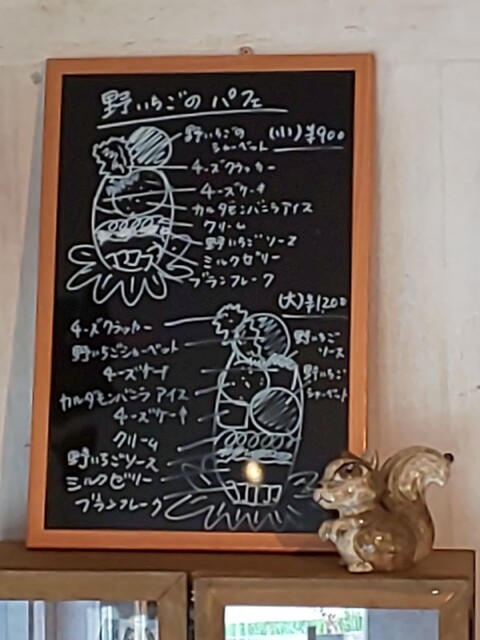 野いちごのパフェ
野いちごの
シャーベット
(小) ¥900
チーズクラッカー
チーズケーキ
カルダモンバニラアイス
クリーム
野いちごソース
ミルクゼリー
ブランフレーク
(大) ¥1,200
チーズクラッカー
野いちごシャーベット
チーズケーキ
カルダモンバニラアイス
チーズケーキ
クリーム
野いちごソース
ミルクゼリー
ブランフレーク
野いちご
ソース
野いちご
シャーベット